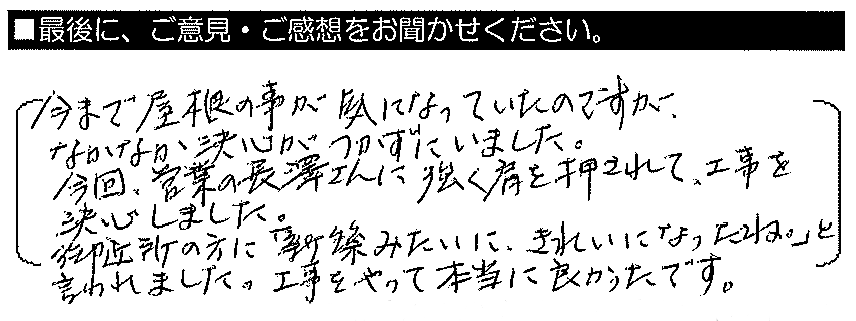 ■最後に、ご意見・ご感想をお聞かせください。
今まで屋根の事が気になっていたのですが、
なかなか決心がつかずにいました。
今回、営業の長澤さんに強く肩を押されて、工事を
決心しました。
御近所の方に「新築みたいに、きれいになったね。」と
言われました。工事をやって本当に良かったです。